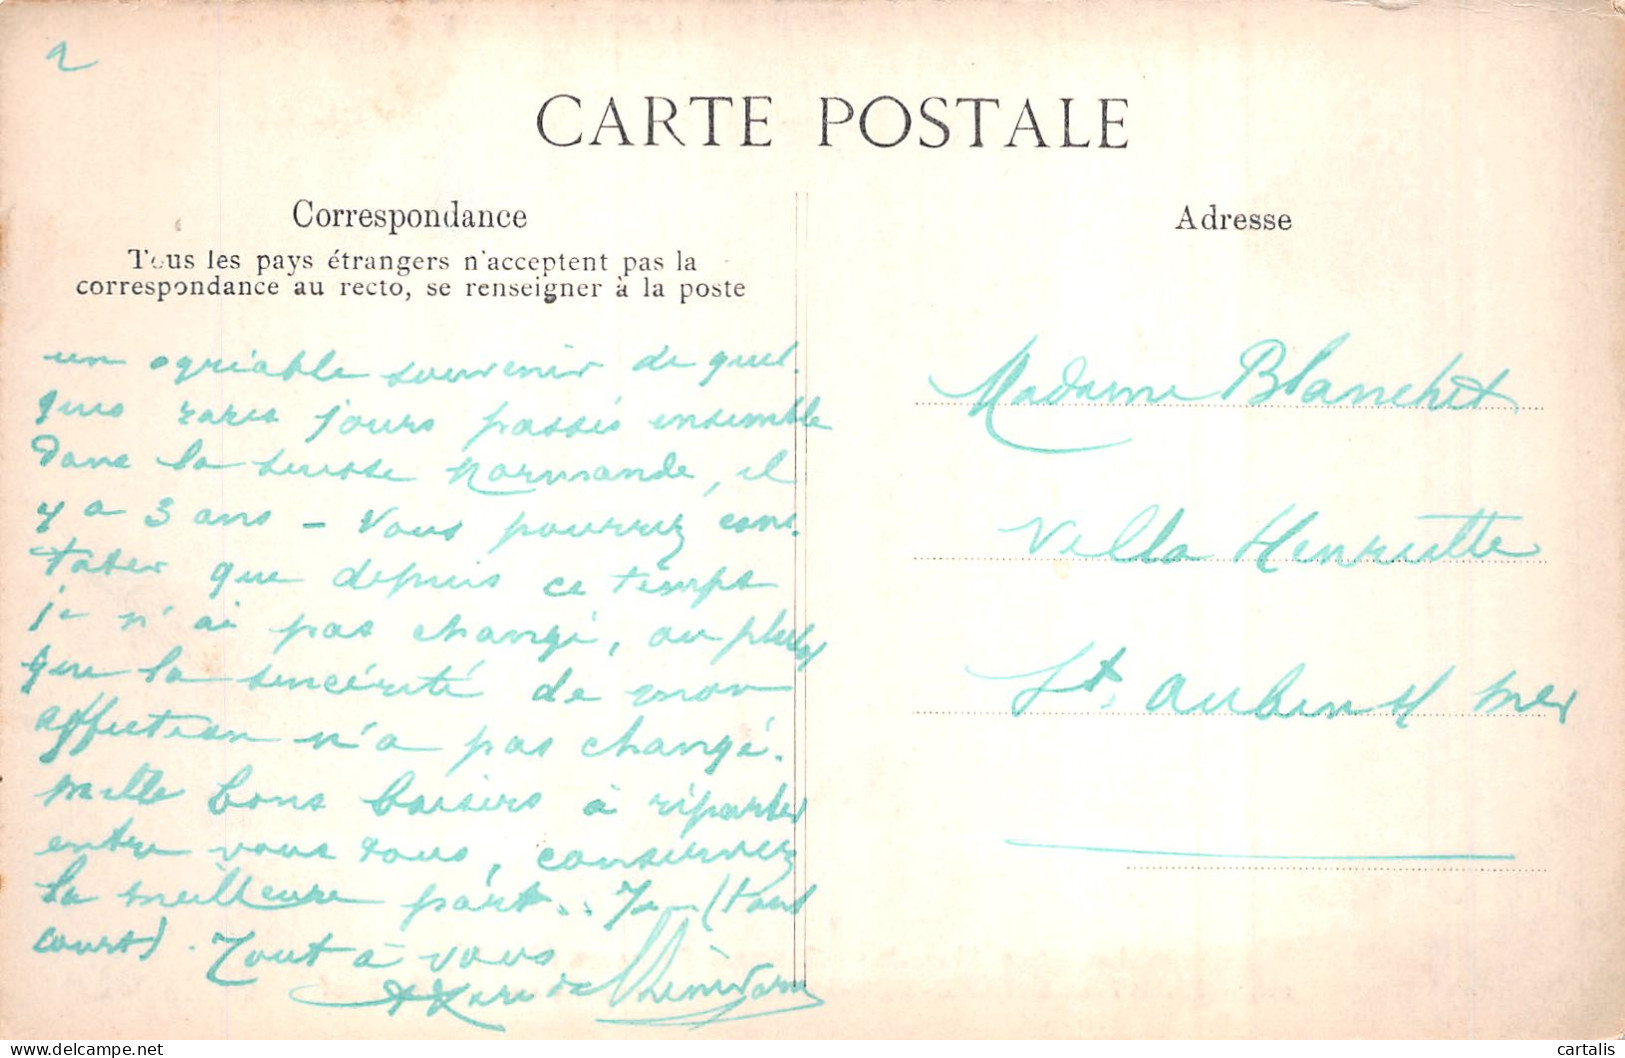 2
CARTE POSTALE
Correspondance
Tous les pays étrangers n'acceptent pas la
correspondance au recto, se renseigner à la poste
un agréable souvenir de quel-
ques rares jours passés ensemble
dans la suisse normande, il
y a 3 ans - Vous pourrez cons-
tater que depuis ce temps
je n'ai pas changé, ou plutôt
que la sincérité de mon
affection n'a pas changé.
Mille bons baisers à répartir
entre vous tous, conservez
la meilleure part... Je (tout
court). Tout à vous
Adresse
Madame Blanchet
Villa Henriette
St. Aubin s/ mer
cartalis